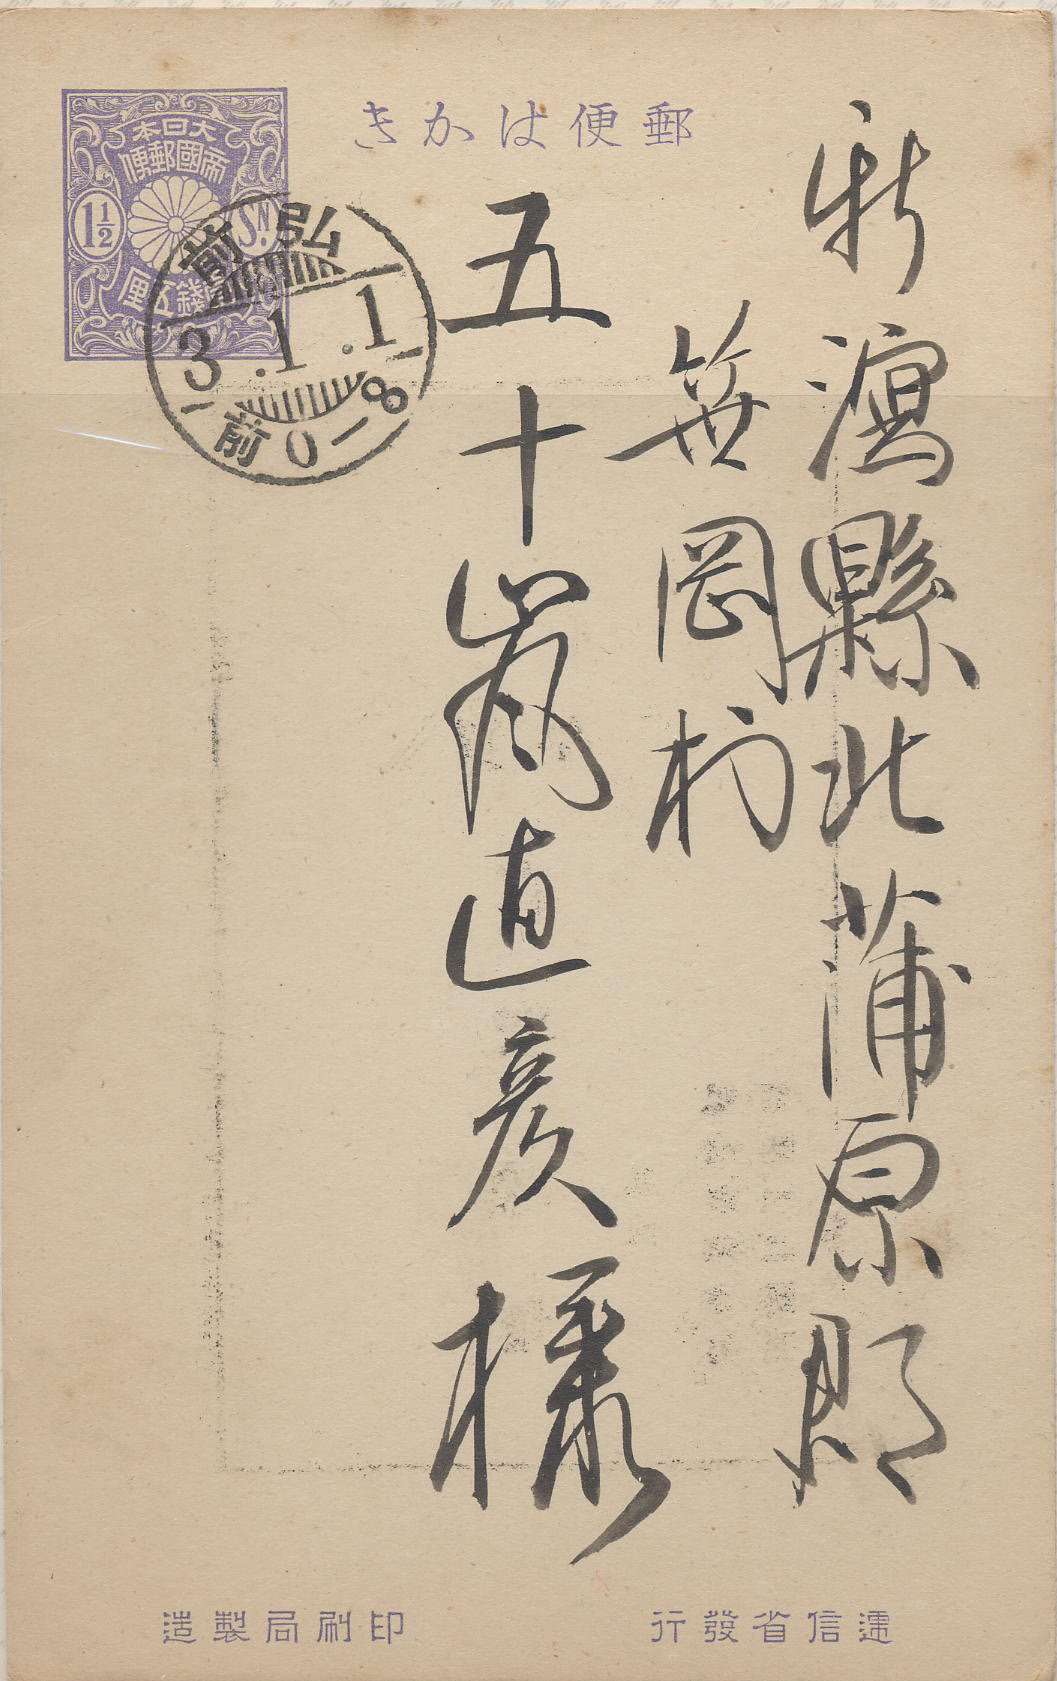 郵便はかき
大日本
帝國郵便
1½
SN.
壹錢五厘
弘前
3.1.1
前0-8
新潟縣北蒲原郡
笹岡村
五十嵐直彦様
逓信省發行
印刷局製造